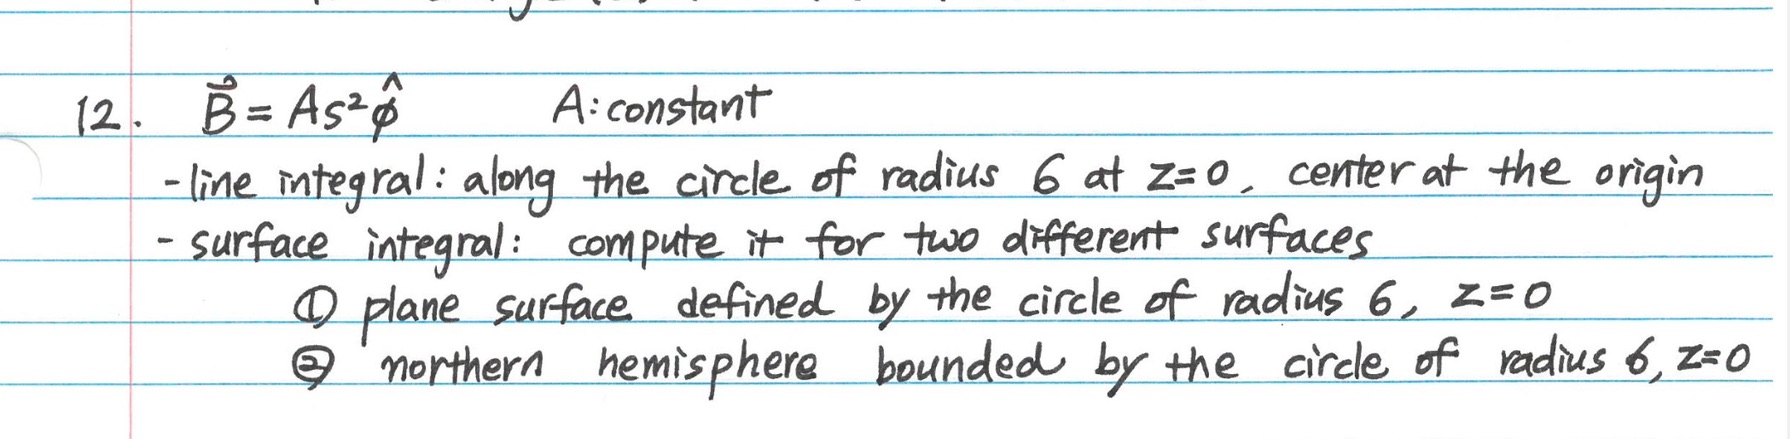 12. B⃗ = As²φ̂ A: constant
- line integral: along the circle of radius 6 at z=0, center at the origin
- surface integral: compute it for two different surfaces
① plane surface defined by the circle of radius 6, z=0
② northern hemisphere bounded by the circle of radius 6, z=0